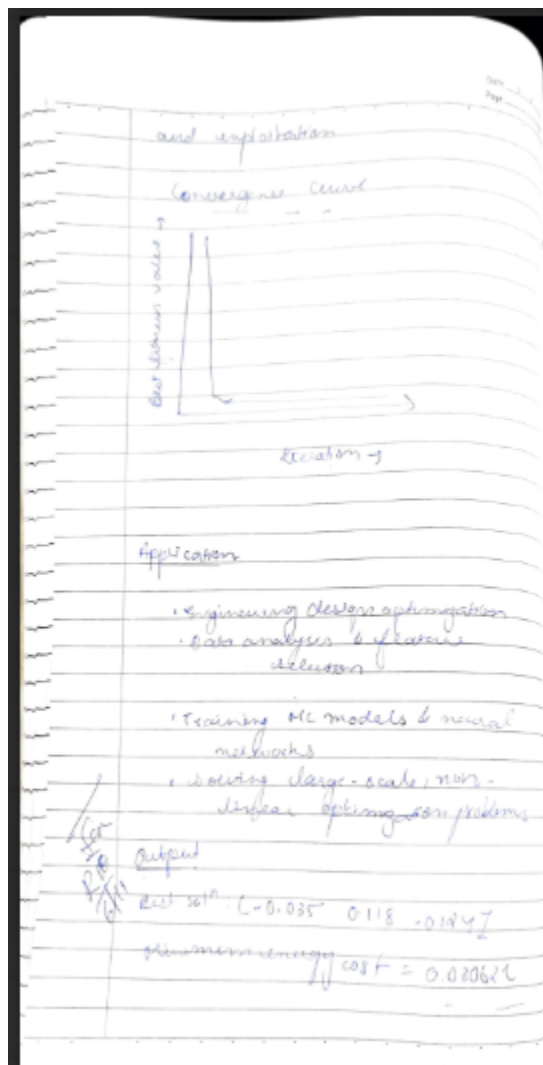 Date
Page
and exploitation
Convergence Curve
Best fitness value →
Iteration →
Application
• Engineering design optimization
• Data analysis & feature
selection
• Training ML models & neural
networks
• Solving large-scale, non-
linear optimization problems
Output
Best solⁿ: [-0.035 0.118
cost =